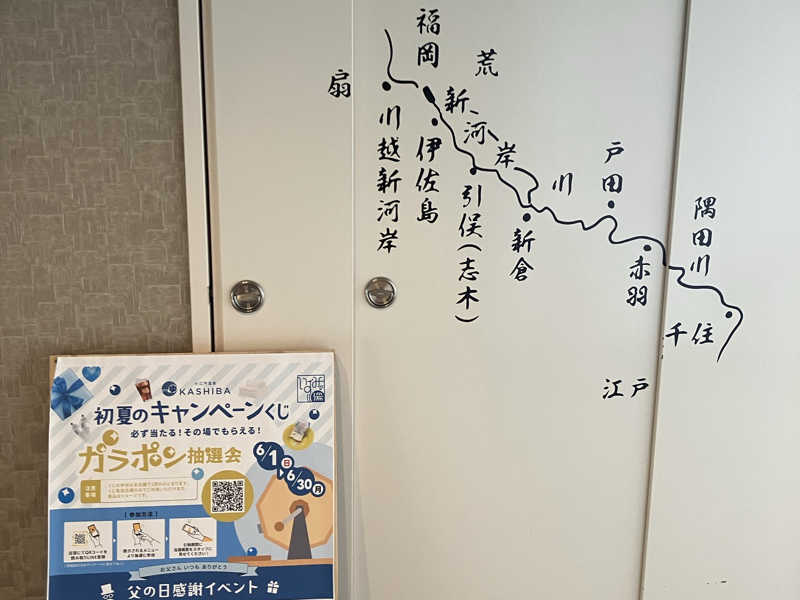 福岡
荒
扇
新河岸
川
川越新河岸
伊佐島
引俣(志木)
新倉
戸田
赤羽
隅田川
千住
江戸
KASHIBA
初夏のキャンペーンくじ
必ず当たる!その場でもらえる!
ガラポン抽選会
6/1日
6/30月
注意事項
【参加方法】
お父さん いつも ありがとう
父の日感謝イベント